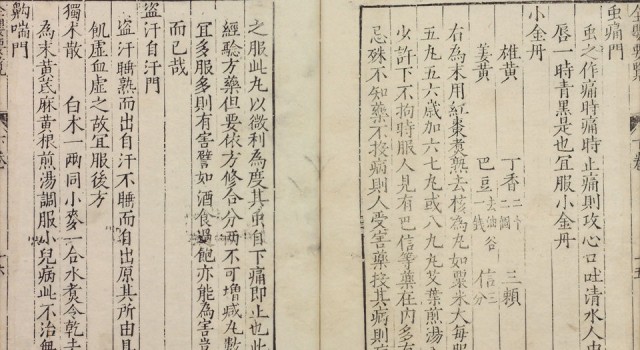 虫痛門
虫之作痛時痛時止痛則攻心口吐清水人中
唇一時青黑是也宜服小金丹
小金丹
雄黄 丁香 三賴
姜黄 巴豆 信
右為末用紅棗煮熟去核為丸如粟米大每服
五丸五六歲加六七丸或八九丸艾葉煎湯
少許下不拘時服人見有巴信等藥在内多有
忌殊不知藥不投病則人受害藥投其病則
之服此丸以微利為度其虫自下痛即止也此
經驗方藥但要依方修合分两不可增減丸數
宜多服多則有害譬如酒食過飽亦能為害豈
而已哉
盗汗自汗門
盗汗睡熟而出自汗不睡而自出原其所由
飢虚血虚之故宜服後方
獨术散 白术一两同小麥一合水煮令乾去
為末黄芪麻黄根煎湯調服小兒病此不治
齁喘門